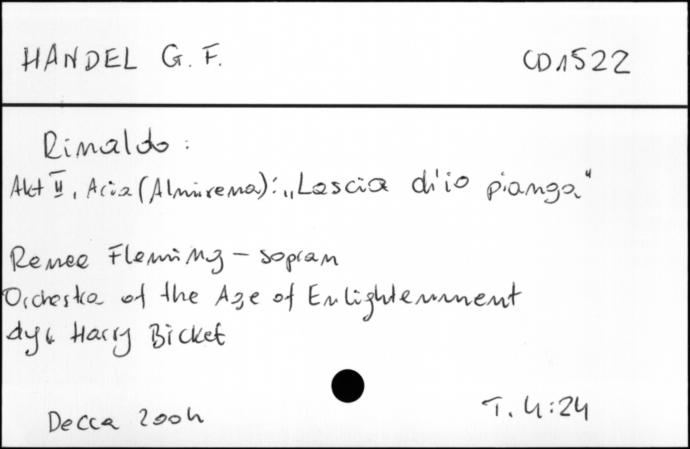 HANDEL G. F. CD1522
Rinaldo:
Akt II, Aria (Almirena): „Lascia ch'io pianga"
Renee Fleming – sopran
Orchestra of the Age of Enlightenment
dyr. Harry Bicket
Decca 2004 T. 4:24